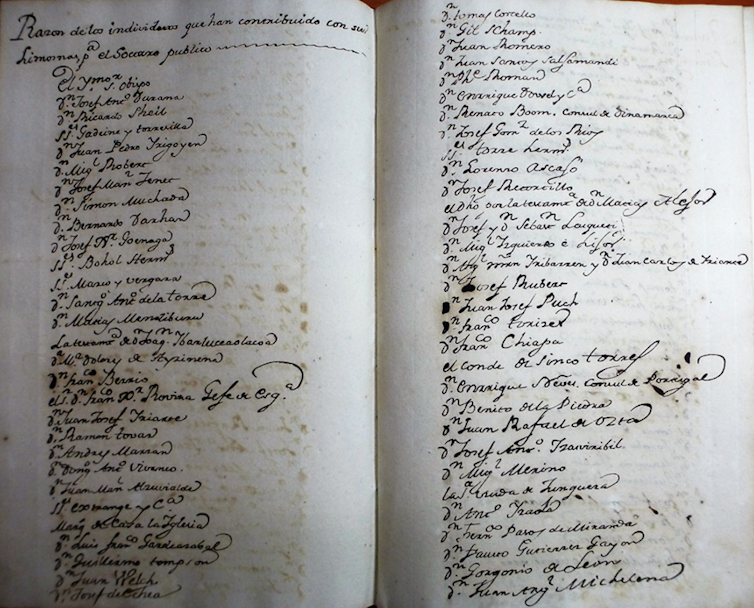 Razon de los individuos que han contribuido con sus
Limosnas, pa. el Socorro publico
El Ylmor. S. Obispo
Dn. Josef Anto. Durana
Dn. Ricardo Sheil
SS. y torre
Dn. Juan Pedro Yrigoyen
Dn. Migl. Robert
Dn. Josef Manl. Jenet
Dn. Simon Muchada
Dn. Bernardo Darhan
Dn. Josef Goenaga
SSes. Bohol Herms.
SSes. Mario y vergara
Dn. Santgo. Anto. de la torre
Dn. Matias Menchiburu
La textama. de
Da. Ma. Dolores de Azpirena
Dn. Franco. Berrio
el S. Dn. Franco. Xr. Rovina Gefe de Esqa.
Dn. Juan Josef Yriarte
Dn. Ramon tovar
Dn. Andres Marzan
Dn. Domgo. Anto. Vivenco.
Dn. Juan Manl. Alzuvialde
SS. y Ca.
Marqs. de Casa la Yglesia
Dn. Luis Franco. Gardeazabal
Dn. Guillermo tompson
Dn. Juan Welch
Dn. Josef de Chea
Dn. tomas Costello
Dn. Gil Schamp
Dn. Juan Romero
Dn. Juan Santos Salsamandi
Dn. Phe. Shornan
Dn. Enrrique Dowel y Ca.
Dn. Renato Boom. Consul de Dinamarca
Dn. Josef Gomz. de los Rios
SSes. torre herms.
Dn. Lorenzo Ascaso
Dn. Josef Recordillo
el Dho. por la texama. de Dn. Matias Alesson
Dn. Josef y Dn. Sebasn.
Dn. Migl. Yzquierdo é hijos
Dn. Angl. Mrtn. Yribarren y Dn. Juan Carlos de Yriarte
Dn. Josef Rubert
Dn. Juan Josef Puch
Dn. Franco.
Dn. Franco. Chiapa
el conde de Sinco torres
Dn. Enrrique Consul de Portugal
Dn. Benito de la Piedra
Dn. Juan Rafael de Ozta
Dn. Josef Anto. Yzaviribil
Dn. Migl. Merino
La Sa. Viuda de Junguera
Dn. Anto. Yraola
Dn. Franco. Patos de Miranda
Dn. Fausto Gutierrez Gayon
Dn. Gorgonio de Leon
Dn. Juan Anto. Michelena